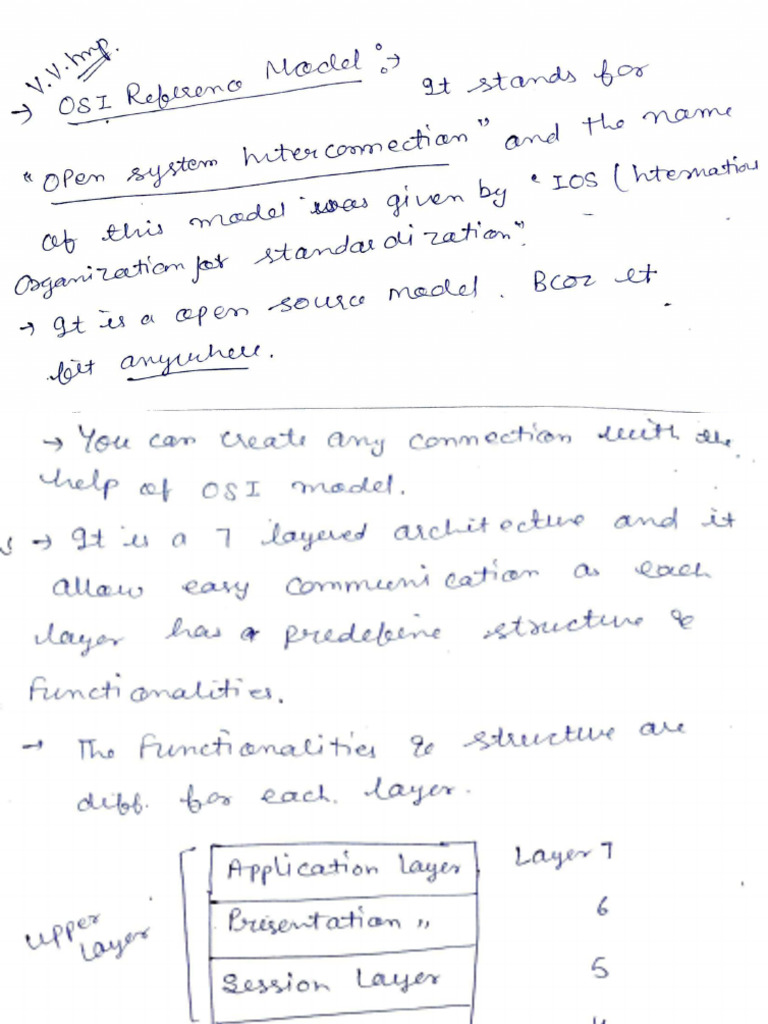 V.V.Imp.
→ OSI Reference Model :→ It stands for
"Open system Interconnection" and the name
of this model was given by "IOS (Internation
Organization for standardization".
→ It is a open source model. Bcoz it
fit anywhere.
→ You can create any connection with the
help of OSI model.
→ It is a 7 layered architecture and it
allow easy communication as each
layer has a predefine structure &
functionalities.
→ The functionalities & structure are
diff. for each layer.
Application Layer Layer 7
Upper Layer Presentation " 6
Session Layer 5
4